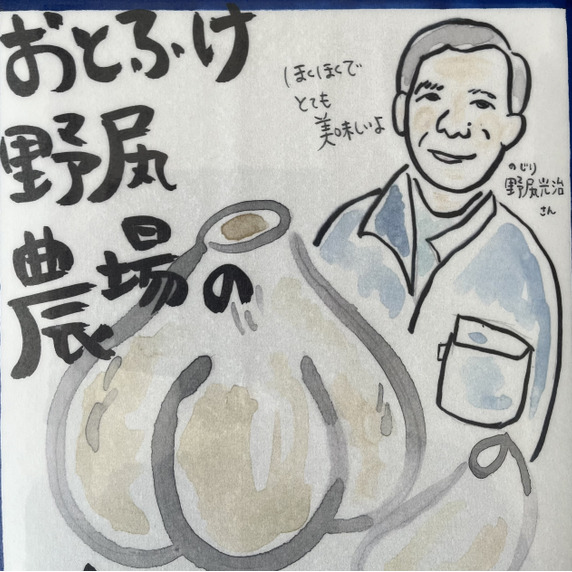 おとふけ
野尻
農場の
ほくほくで
とても
美味いよ
のじり
野尻光治
さん